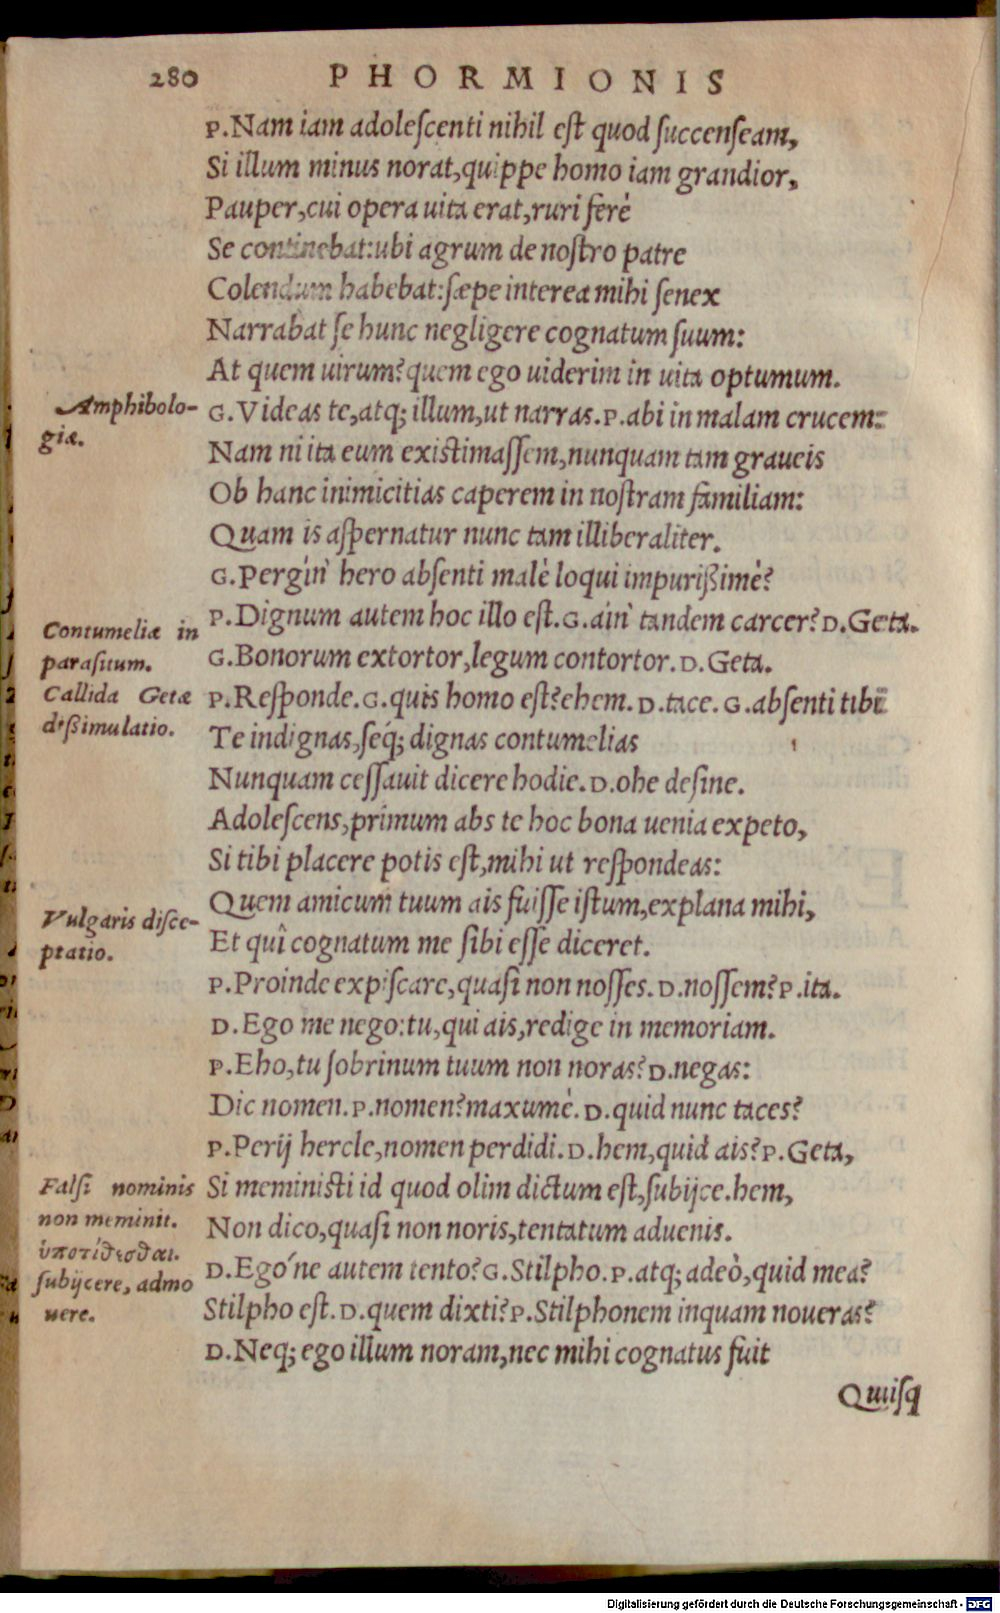 280 PHORMIONIS
P.Nam iam adoleſcenti nihil eſt quod ſuccenſeam,
Si illum minus norat,quippe homo iam grandior,
Pauper,cui opera uita erat,ruri ferè
Se continebat:ubi agrum de noſtro patre
Colendum habebat:ſæpe interea mihi ſenex
Narrabat ſe hunc negligere cognatum ſuum:
At quem uirum?quem ego uiderim in uita optumum.
Amphibolo-
giæ.
G.Videas te,atq; illum,ut narras.P.abi in malam crucem:
Nam ni ita eum existimaſſem,nunquam tam graueis
Ob hanc inimicitias caperem in noſtram familiam:
Quam is aſpernatur nunc tam illiberaliter.
G.Pergin' hero abſenti malè loqui impurißimè?
P.Dignum autem hoc illo est.G.ain' tandem carcer?D.Geta.
Contumeliæ in
paraſitum.
G.Bonorum extortor,legum contortor.D.Geta.
Callida Getæ
dißimulatio.
P.Reſponde.G.quis homo eſt?ehem.D.tace.G.abſenti tibi
Te indignas,ſeq́; dignas contumelias
Nunquam ceſſauit dicere hodie.D.ohe deſine.
Adoleſcens,primum abs te hoc bona uenia expeto,
Si tibi placere potis eſt,mihi ut reſpondeas:
Quem amicum tuum ais fuiſſe iſtum,explana mihi,
Vulgaris diſce-
ptatio.
Et quî cognatum me ſibi eſſe diceret.
P.Proinde expiſcare,quaſi non noſſes.D.noſſem?P.ita.
D.Ego me nego:tu,qui ais,redige in memoriam.
P.Eho,tu ſobrinum tuum non noras?D.negas:
Dic nomen.P.nomen?maxumè.D.quid nunc taces?
P.Perij hercle,nomen perdidi.D.hem,quid ais?P.Geta,
Falſi nominis
non meminit.
ὑποτίθεσθαι.
ſubijcere, admo
uere.
Si meministi id quod olim dictum eſt,ſubijce.hem,
Non dico,quaſi non noris,tentatum aduenis.
D.Egóne autem tento?G.Stilpho.P.atq; adeò,quid mea?
Stilpho eſt.D.quem dixti?P.Stilphonem inquam noueras?
D.Neq; ego illum noram,nec mihi cognatus fuit
Quiſq
Digitalisierung gefördert durch die Deutsche Forschungsgemeinschaft - DFG